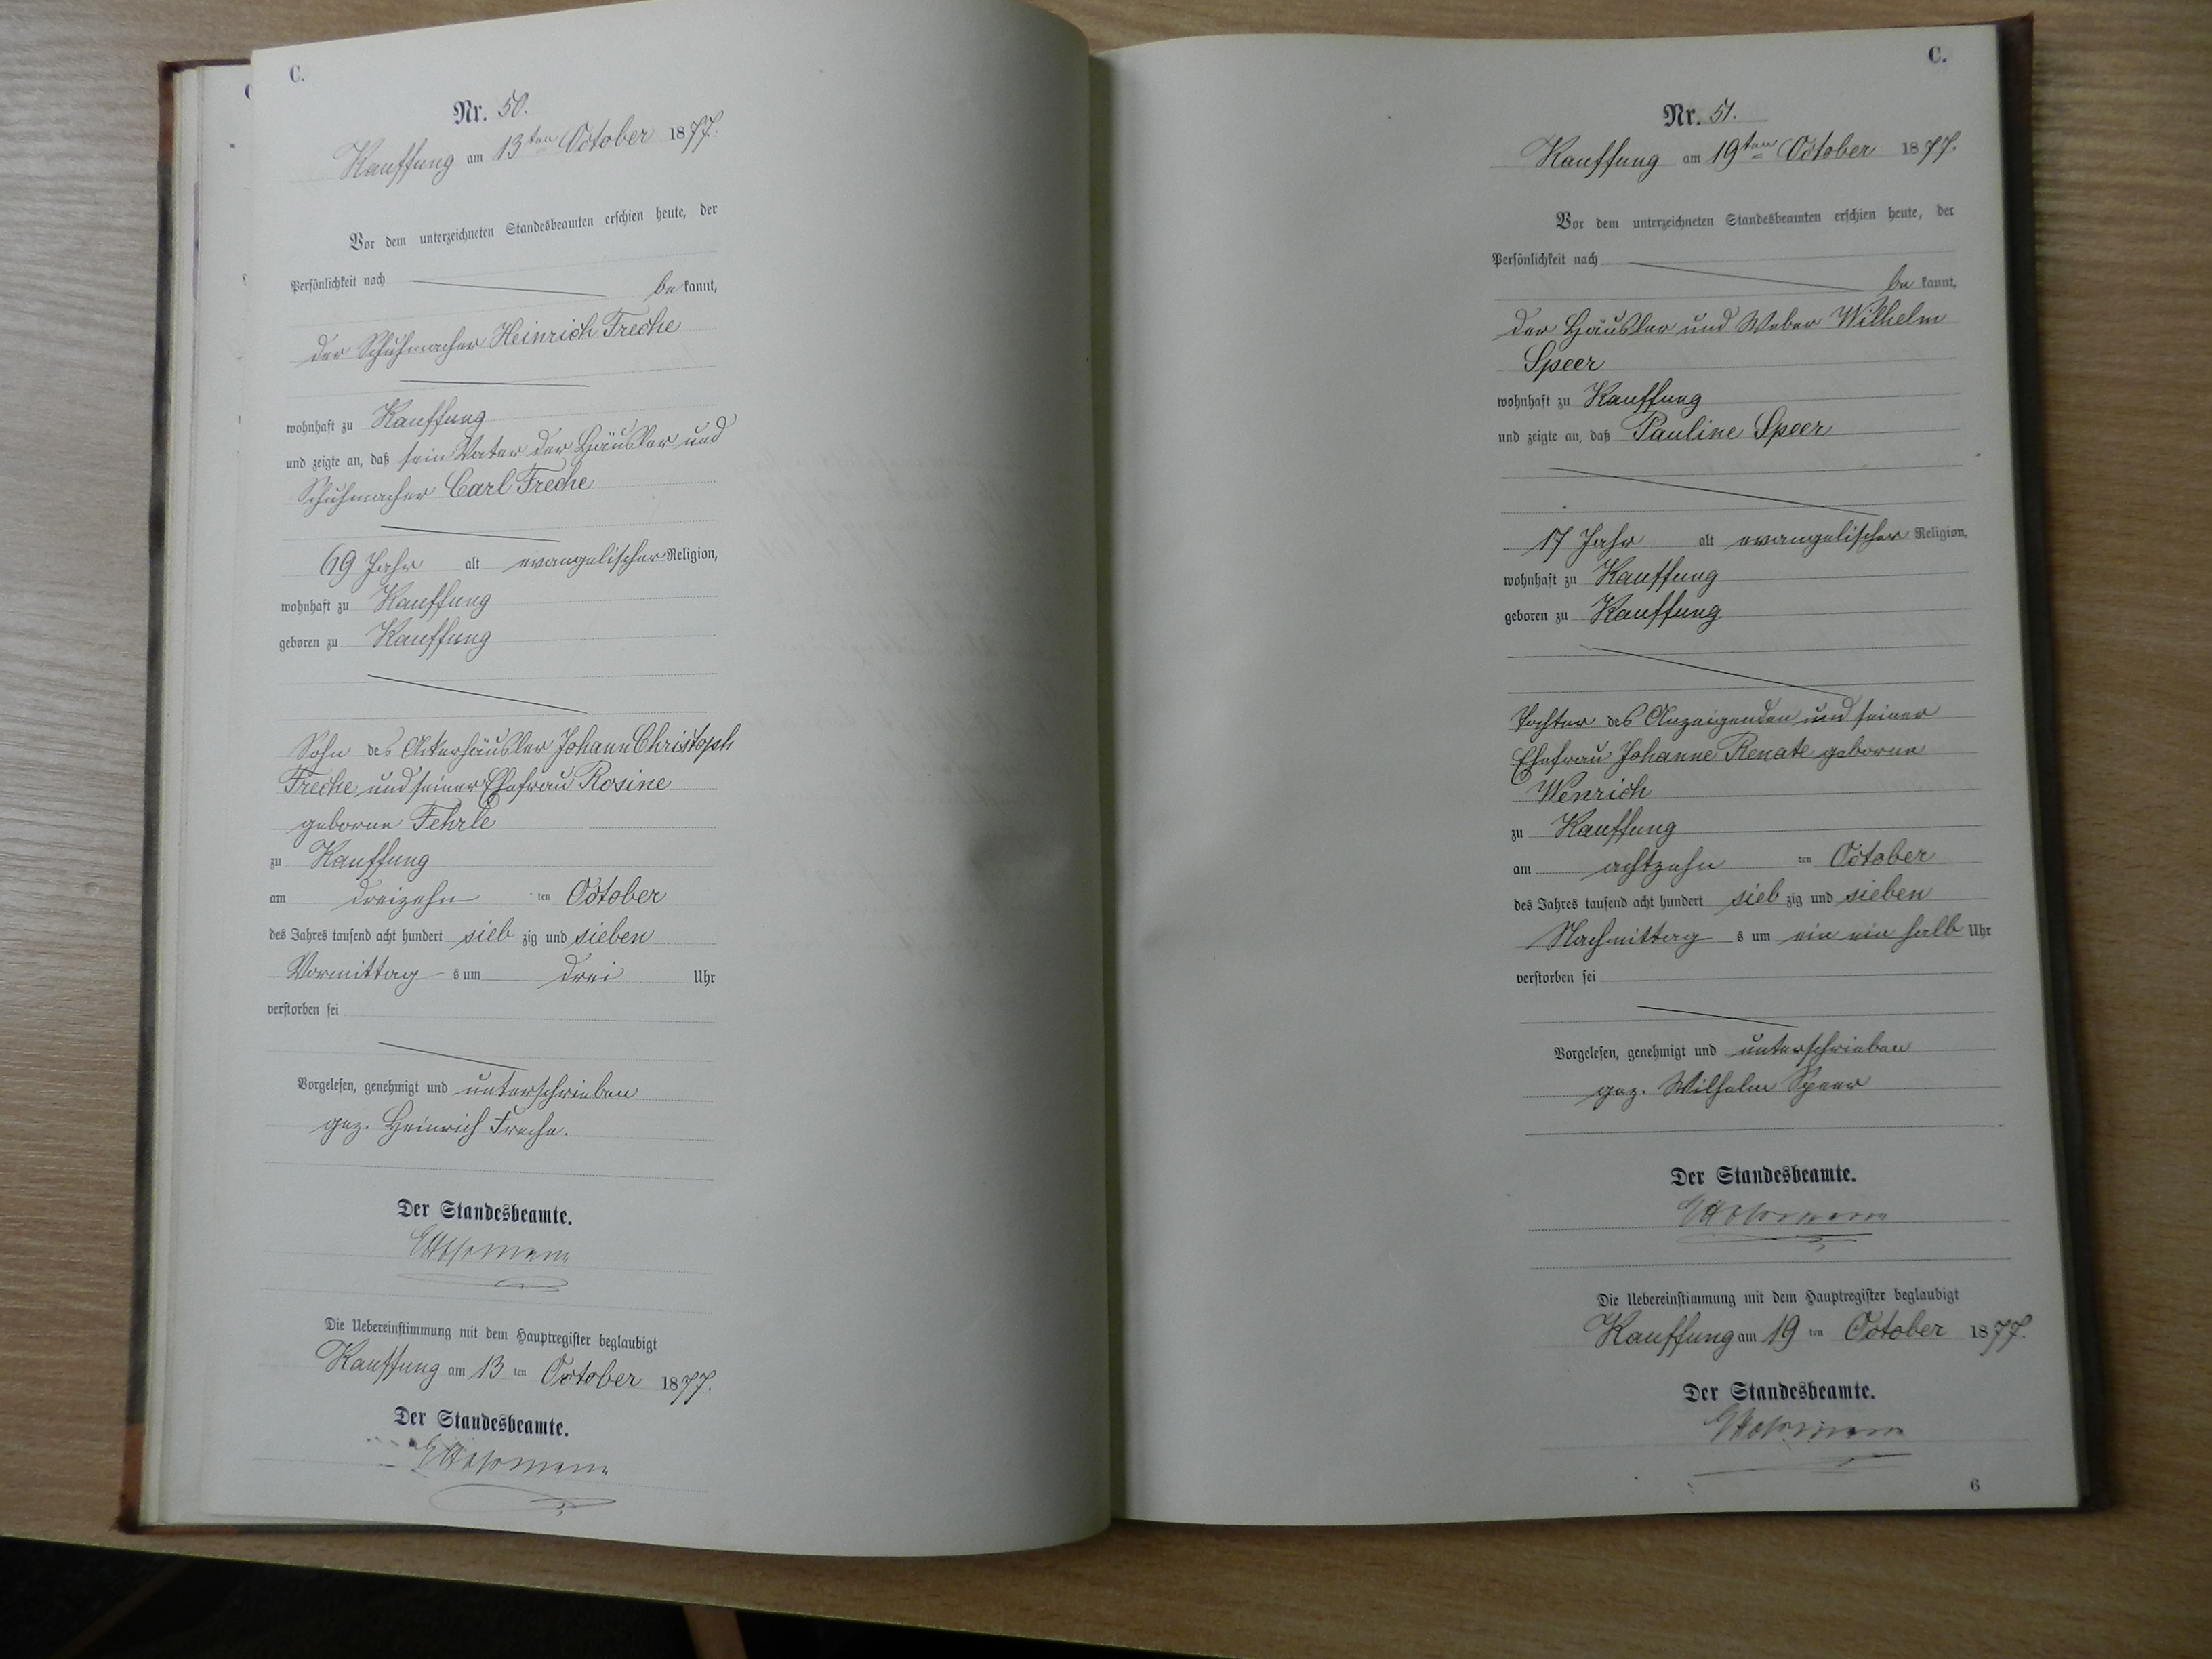 C.
Nr. 50.
Kauffung am 13ten October 1877.
Vor dem unterzeichneten Standesbeamten erschien heute, der
Persönlichkeit nach
bekannt,
der Schuhmacher Heinrich Freche
wohnhaft zu Kauffung
und zeigte an, daß sein Vater der Häusler und
Schuhmacher Carl Freche
69 Jahr alt evangelischer Religion,
wohnhaft zu Kauffung
geboren zu Kauffung
Sohn des Ackerhäusler Johann Christoph
Freche und seiner Ehefrau Rosine
geborne Fehrle
zu Kauffung
am dreizehn ten October
des Jahres tausend acht hundert sieb zig und sieben
Vormittag s um drei Uhr
verstorben sei
Vorgelesen, genehmigt und unterschrieben
gez. Heinrich Freche.
Der Standesbeamte.
Die Uebereinstimmung mit dem Hauptregister beglaubigt
Kauffung am 13 ten October 1877.
Der Standesbeamte.
C.
Nr. 51.
Kauffung am 19ten October 1877.
Vor dem unterzeichneten Standesbeamten erschien heute, der
Persönlichkeit nach
bekannt,
der Häusler und Weber Wilhelm
Speer
wohnhaft zu Kauffung
und zeigte an, daß Pauline Speer
17 Jahr alt evangelischer Religion,
wohnhaft zu Kauffung
geboren zu Kauffung
Tochter des Anzeigenden und seiner
Ehefrau Johanne Renate geborne
Wenrich
zu Kauffung
am achtzehn ten October
des Jahres tausend acht hundert sieb zig und sieben
Nachmittag s um ein ein halb Uhr
verstorben sei
Vorgelesen, genehmigt und unterschrieben
gez. Wilhelm Speer
Der Standesbeamte.
Die Uebereinstimmung mit dem Hauptregister beglaubigt
Kauffung am 19 ten October 1877.
Der Standesbeamte.
6